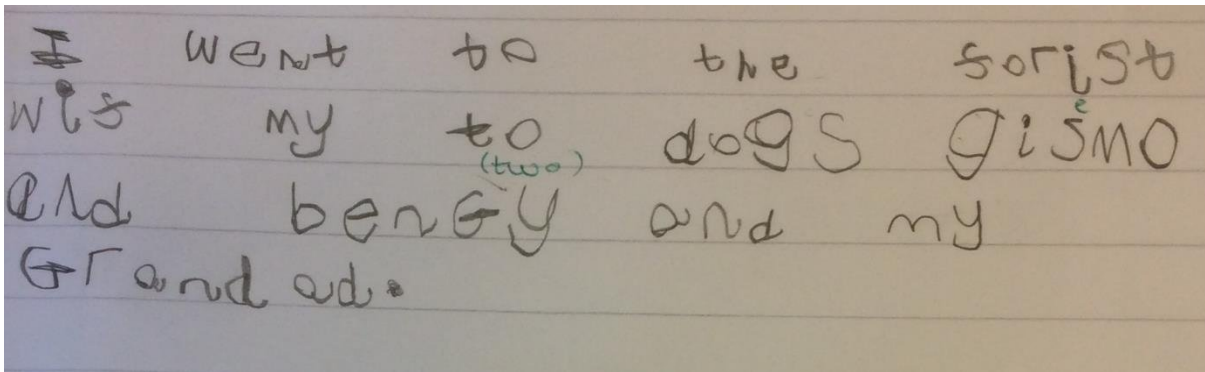 I went to the forist
e
wif my to dogs gismo
(two)
and benGy and my
Grandad.